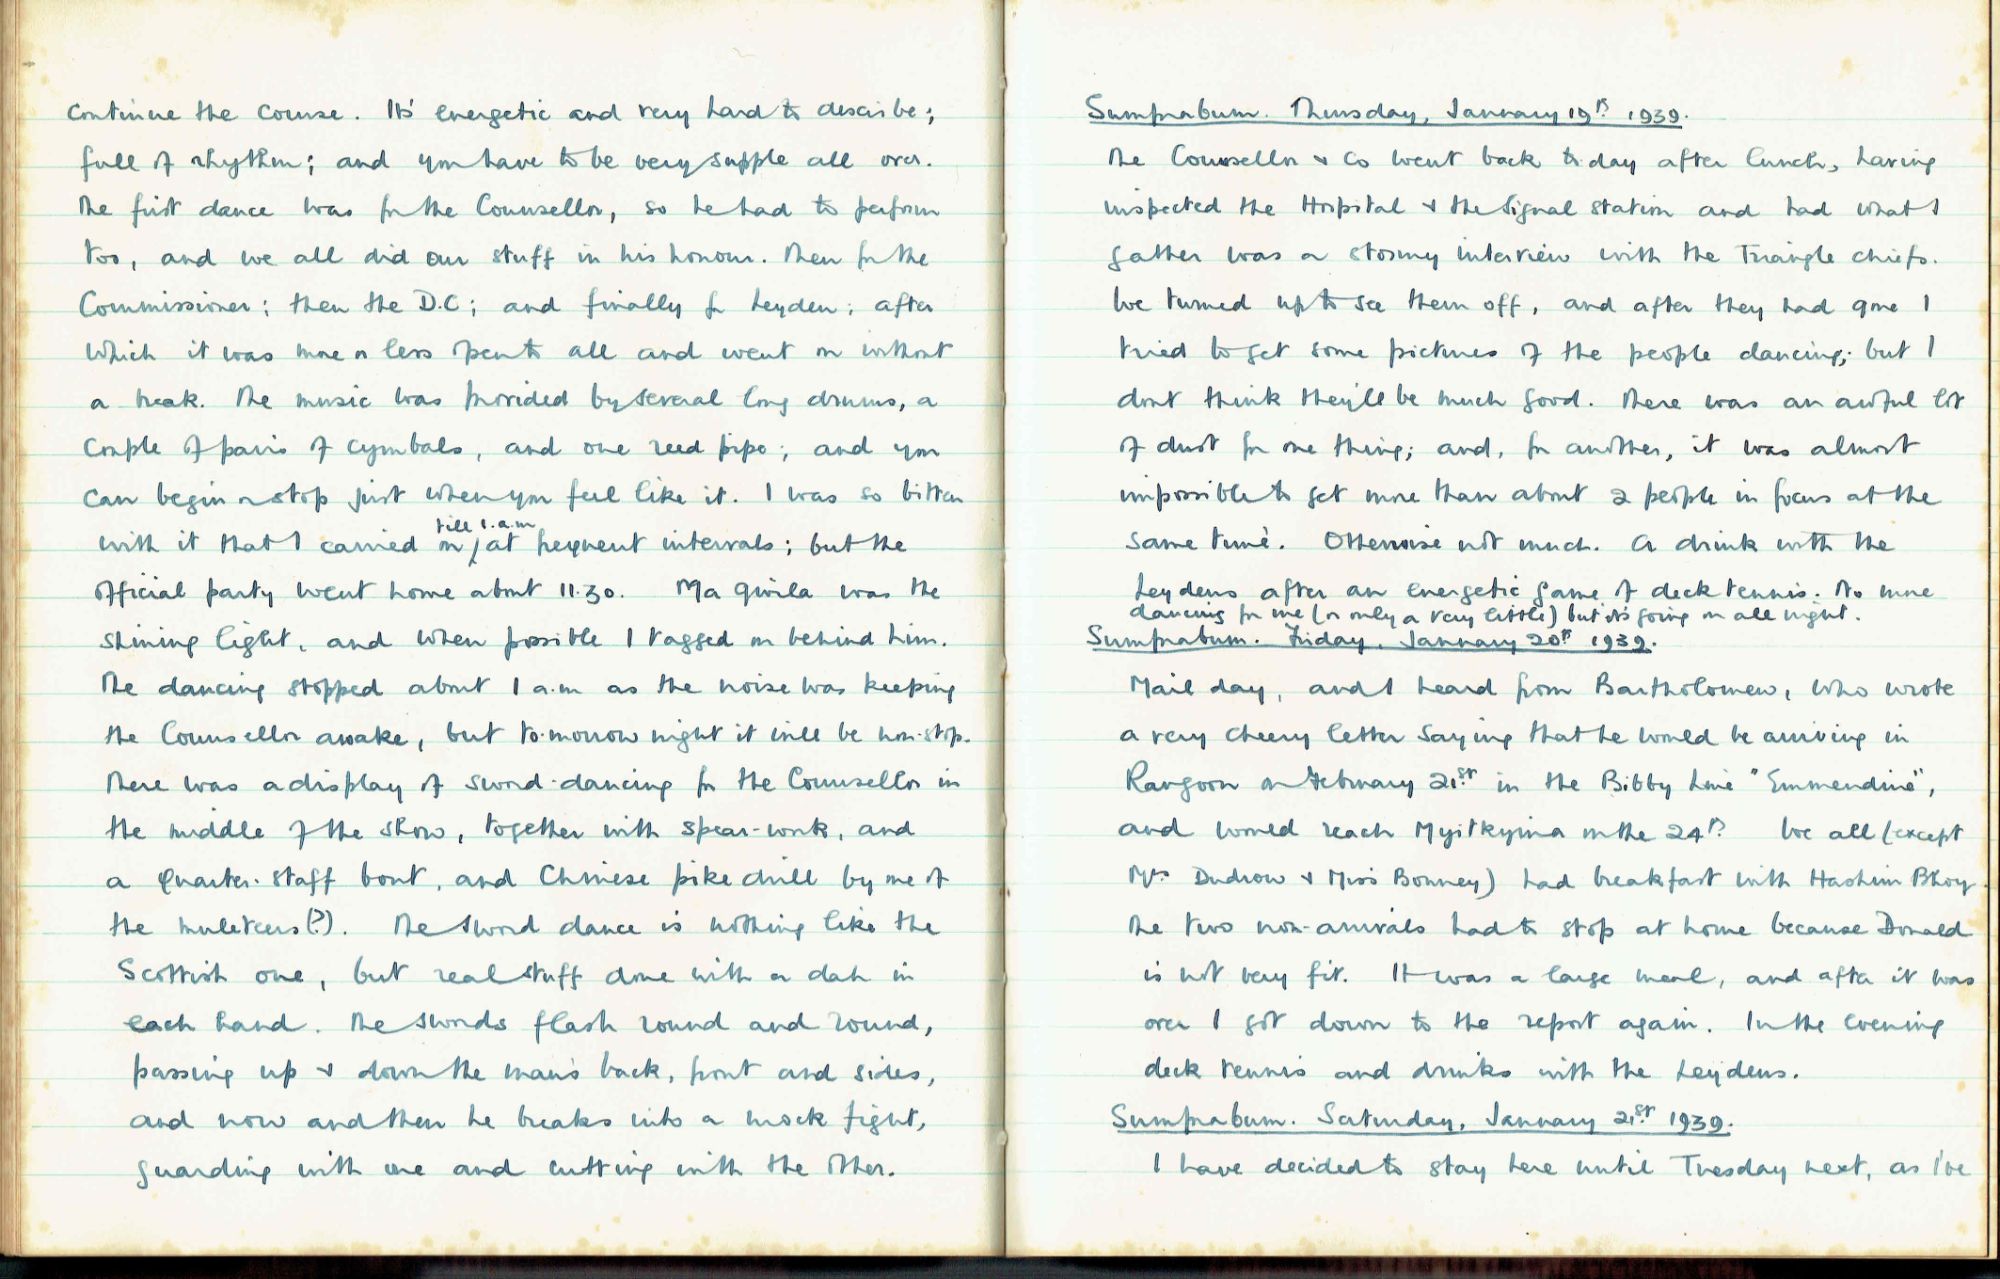 continue the course. It's energetic and very hard to describe;
full of rhythm; and you have to be very supple all over.
The first dance was for the Counsellor, so he had to perform
too, and we all did our stuff in his honour. Then for the
Commissioner; then the D.C; and finally for Leyden; after
which it was more or less open to all and went on without
a break. The music was provided by several long drums, a
couple of pairs of cymbals, and one reed pipe; and you
can begin or stop just when you feel like it. I was so bitten
till 1.a.m
with it that I carried on / at frequent intervals; but the
official party went home about 11.30. Ma Gwila was the
shining light, and when possible I tagged on behind him.
The dancing stopped about 1 a.m as the noise was keeping
the Counsellor awake, but to-morrow night it will be non-stop.
There was a display of sword-dancing for the Counsellor in
the middle of the show, together with spear-work, and
a quarter-staff bout, and Chinese pike drill by one of
the muleteers(?). The sword dance is nothing like the
Scottish one, but real stuff done with a dah in
each hand. The swords flash round and round,
passing up & down the man's back, front and sides,
and now and then he breaks into a mock fight,
guarding with one and cutting with the other.
Sumprabum. Thursday, January 19th 1939.
The Counsellor & Co went back to-day after lunch, having
inspected the Hospital & the Signal station and had what I
gather was a stormy interview with the Triangle chiefs.
We turned up to see them off, and after they had gone I
tried to get some pictures of the people dancing; but I
dont think they'll be much good. There was an awful lot
of dust for one thing; and, for another, it was almost
impossible to get more than about 2 people in focus at the
same time. Otherwise not much. A drink with the
Leydens after an energetic game of deck tennis. No more
dancing for me (or only a very little) but it's going on all night.
Sumprabum. Friday, January 20th 1939.
Mail day, and I heard from Bartholomew, who wrote
a very cheery letter saying that he would be arriving in
Rangoon on February 21st in the Bibby Line "Emmendine",
and would reach Myitkyina on the 24th. We all (except
Mrs Dudrow & Miss Bonney) had breakfast with Hashim Bhoy.
The two non-arrivals had to stop at home because Donald
is not very fit. It was a large meal, and after it was
over I got down to the report again. In the evening
deck tennis and drinks with the Leydens.
Sumprabum. Saturday, January 21st 1939.
I have decided to stay here until Tuesday next, as I've